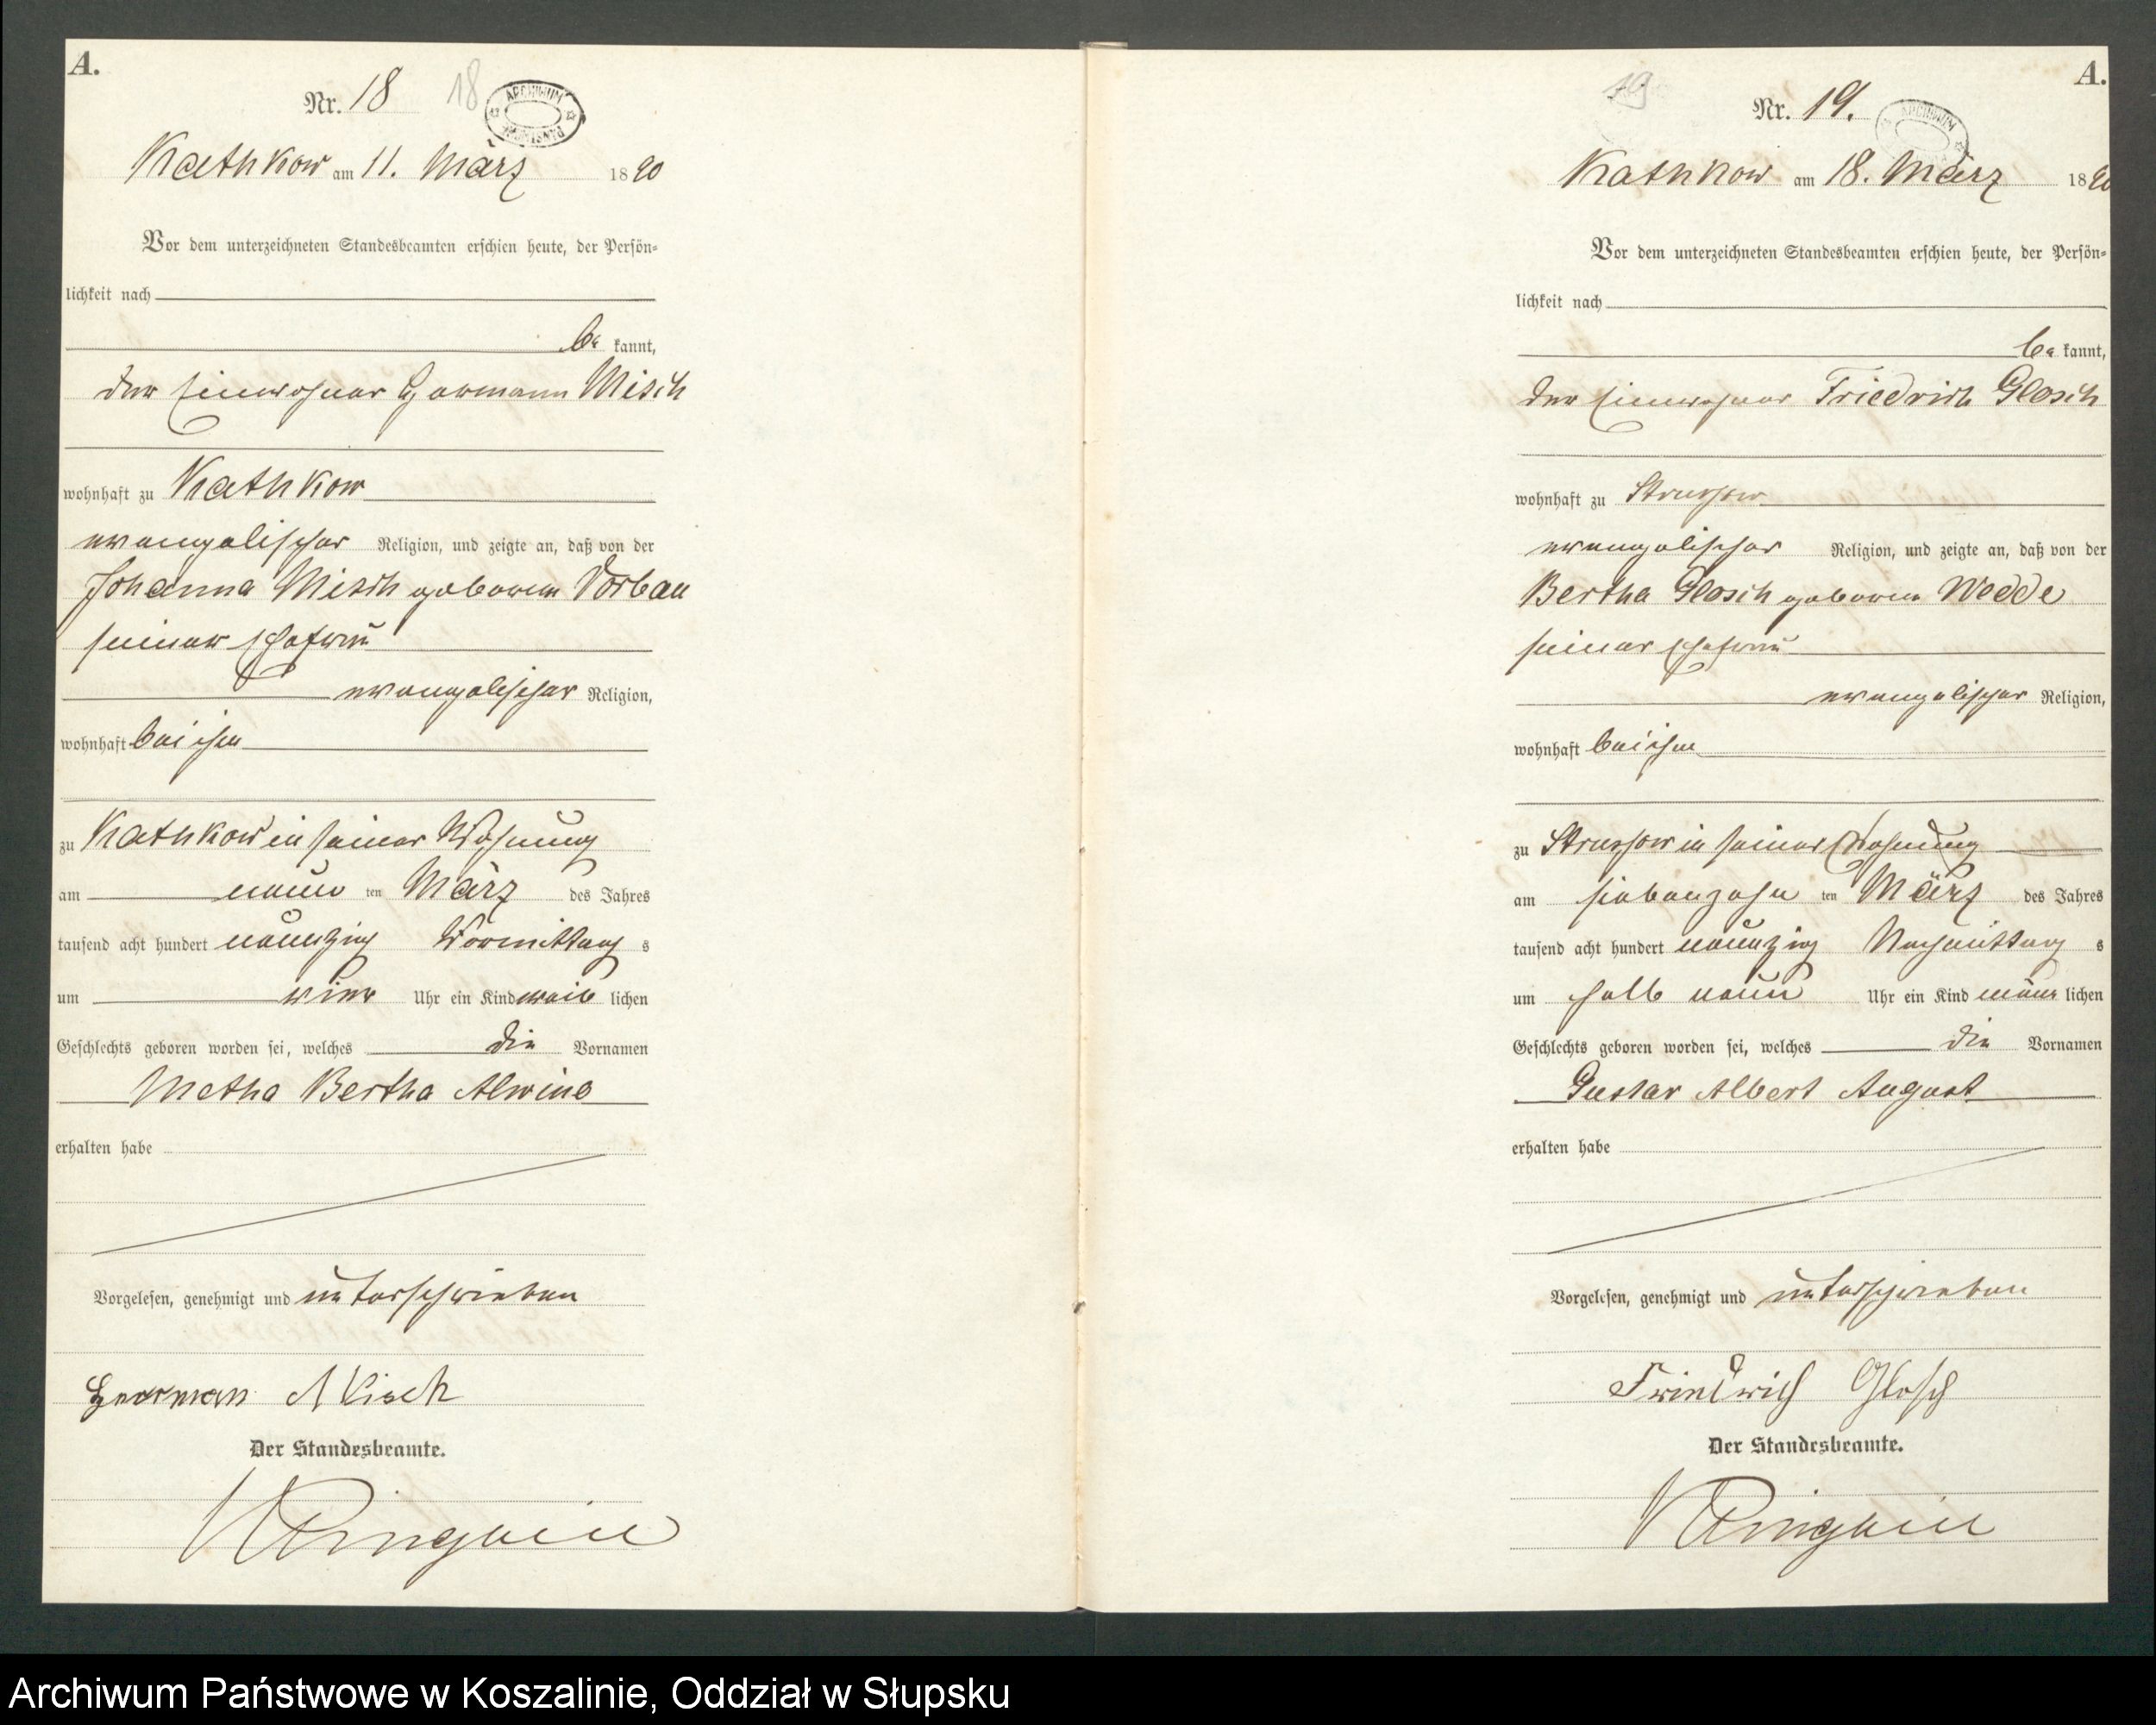 A.
Nr. 18 18
ARCHIWUM PAŃSTWOWE
Kathkow am 11. März 1890
Vor dem unterzeichneten Standesbeamten erschien heute, der Persön-
lichkeit nach
be kannt,
der Einwohner Hermann Misch
wohnhaft zu Kathkow
evangelischer Religion, und zeigte an, daß von der
Johanna Misch geborenen Vorbau
seiner Ehefrau
evangelischer Religion,
wohnhaft bei ihm
zu Kathkow in seiner Wohnung
am neun ten März des Jahres
tausend acht hundert neunzig Vormittag s
um vier Uhr ein Kind weib lichen
Geschlechts geboren worden sei, welches die Vornamen
Metha Bertha Alwine
erhalten habe
Vorgelesen, genehmigt und unterschrieben
Herman Misch
Der Standesbeamte.
A.
19
Nr. 19.
ARCHIWUM
Kathkow am 18. März 1890
Vor dem unterzeichneten Standesbeamten erschien heute, der Persön-
lichkeit nach
be kannt,
der Einwohner Friedrich Glosch
wohnhaft zu Strussow
evangelischer Religion, und zeigte an, daß von der
Bertha Glosch geborenen Wedde
seiner Ehefrau
evangelischer Religion,
wohnhaft bei ihm
zu Strussow in seiner Wohnung
am siebenzehn ten März des Jahres
tausend acht hundert neunzig Nachmittag s
um halb neun Uhr ein Kind männ lichen
Geschlechts geboren worden sei, welches die Vornamen
Gustav Albert August
erhalten habe
Vorgelesen, genehmigt und unterschrieben
Friedrich Glosch
Der Standesbeamte.
Archiwum Państwowe w Koszalinie, Oddział w Słupsku